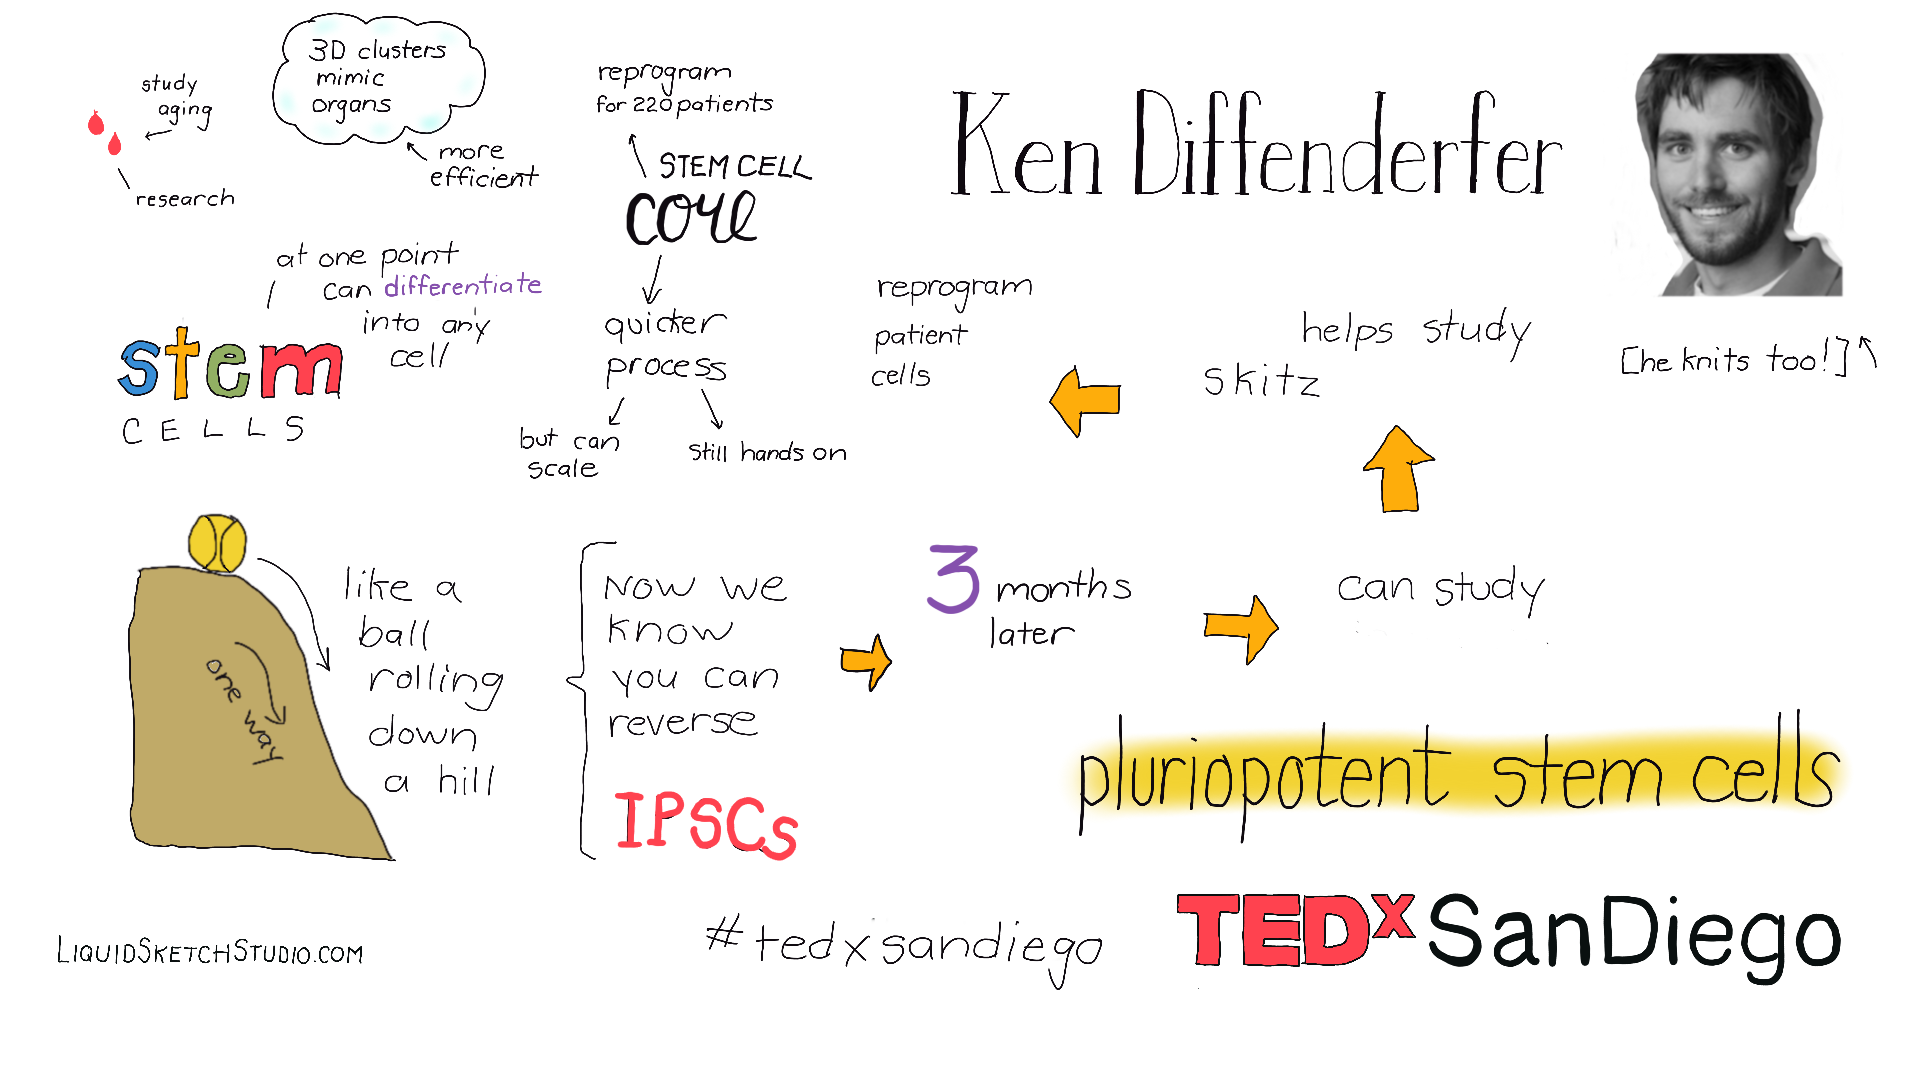 study
aging
research
3D clusters
mimic
organs
more
efficient
reprogram
for 220 patients
STEM CELL
core
quicker
process
but can
scale
still hands on
Ken Diffenderfer
[he knits too!]
at one point
can differentiate
into any
cell
stem
CELLS
reprogram
patient
cells
helps study
skitz
like a
ball
rolling
down
a hill
one way
Now we
know
you can
reverse
IPSCs
3 months
later
can study
pluriopotent stem cells
LIQUIDSKETCHSTUDIO.COM
#tedxsandiego
TEDx SanDiego